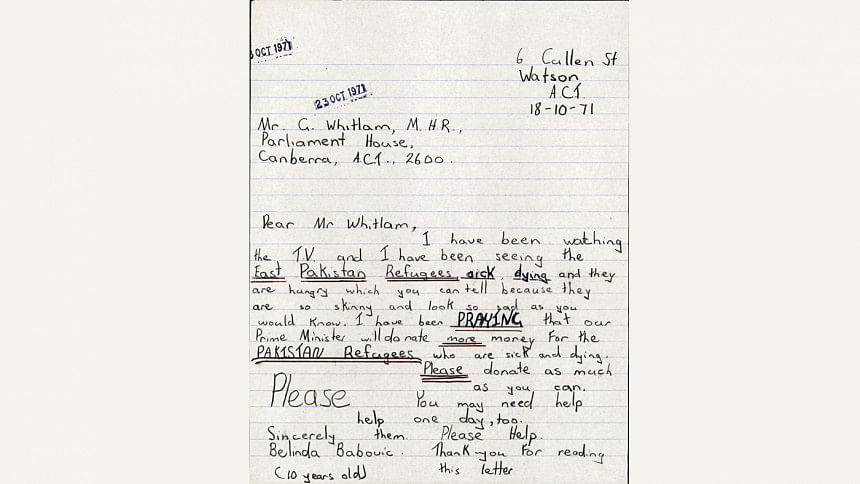 OCT 1971
6 Cullen St
Watson
A.C.T.
23 OCT 1971
18-10-71
Mr. G. Whitlam, M.H.R.,
Parliament House,
Canberra, A.C.T., 2600.
Dear Mr Whitlam,
I have been watching
the T.V. and I have been seeing the
East Pakistan Refugees sick dying and they
are hungry which you can tell because they
are so skinny and look so sad as you
would know. I have been PRAYING that our
Prime Minister will donate more money for the
PAKISTAN Refugees who are sick and dying.
Please donate as much
as you can.
Please You may need help
help one day, too.
Sincerely them. Please Help.
Belinda Babovic. Thank you For reading
(10 years old) this letter